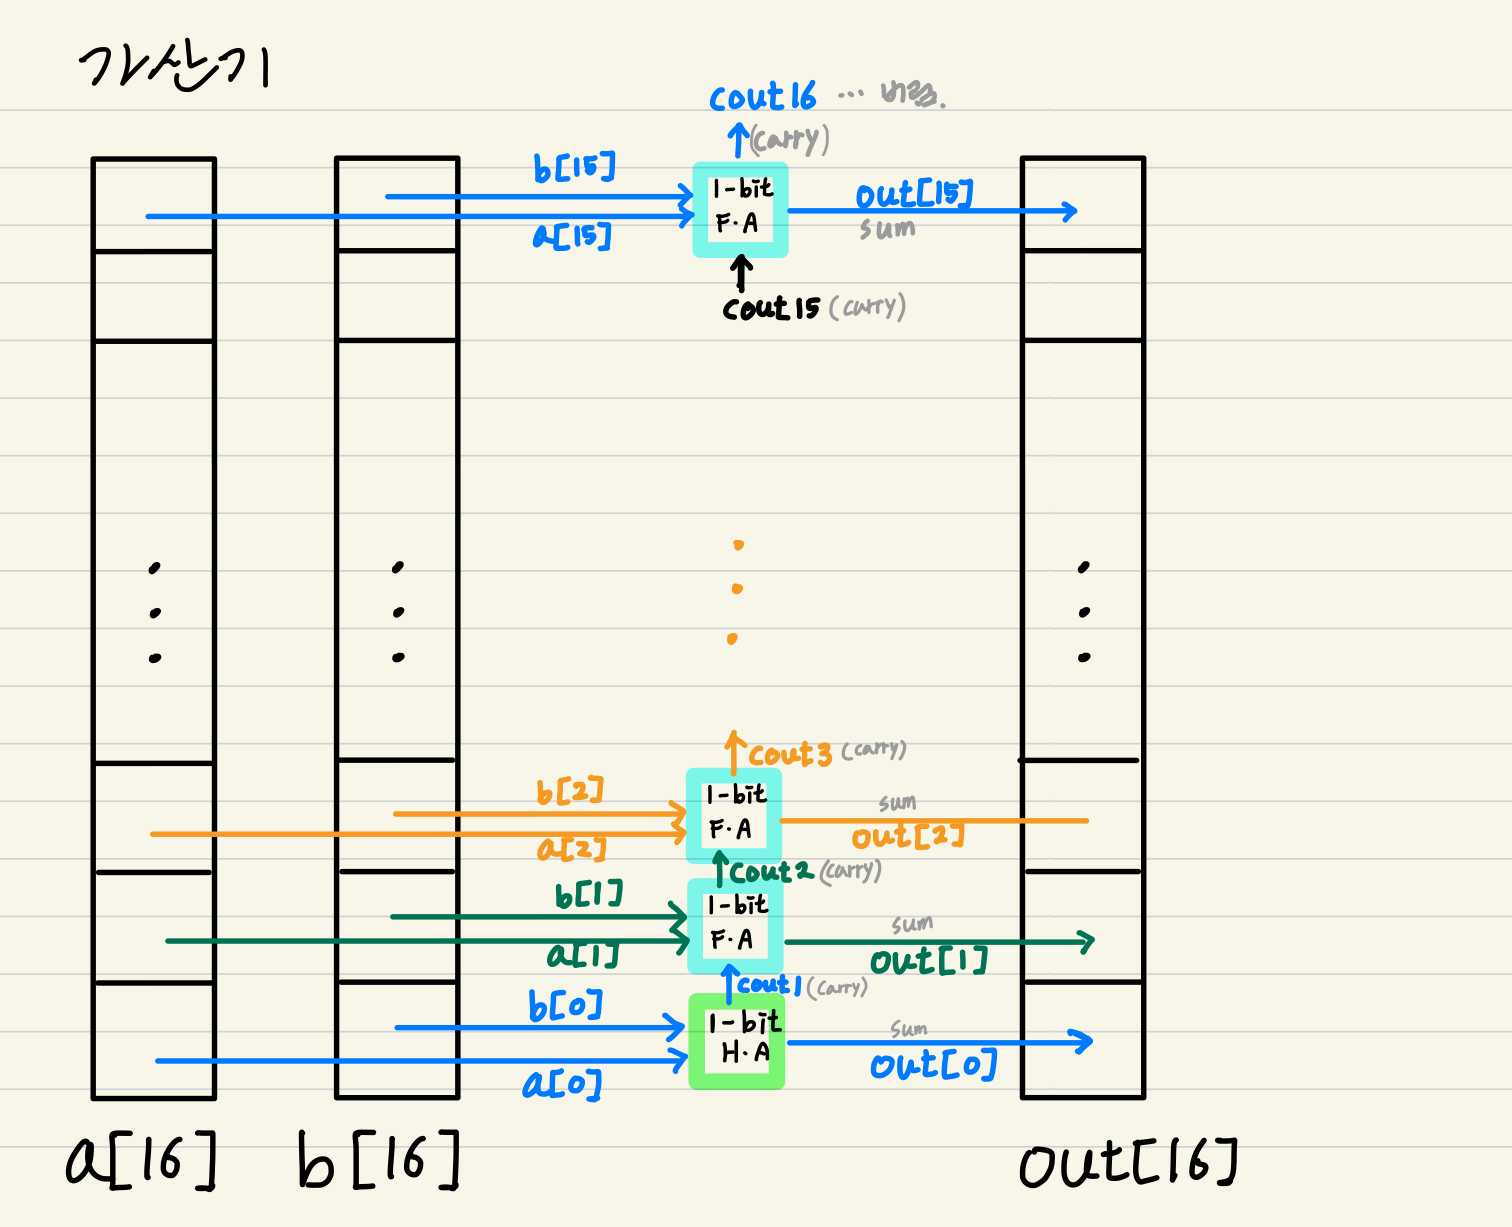 가산기
cout16 … 버림.
(carry)
b[15]
a[15]
1-bit
F.A
out[15]
sum
cout15 (carry)
cout3 (carry)
b[2]
a[2]
1-bit
F.A
sum
out[2]
cout2 (carry)
b[1]
a[1]
1-bit
F.A
sum
out[1]
cout1 (carry)
b[0]
a[0]
1-bit
H.A
sum
out[0]
a[16] b[16] out[16]